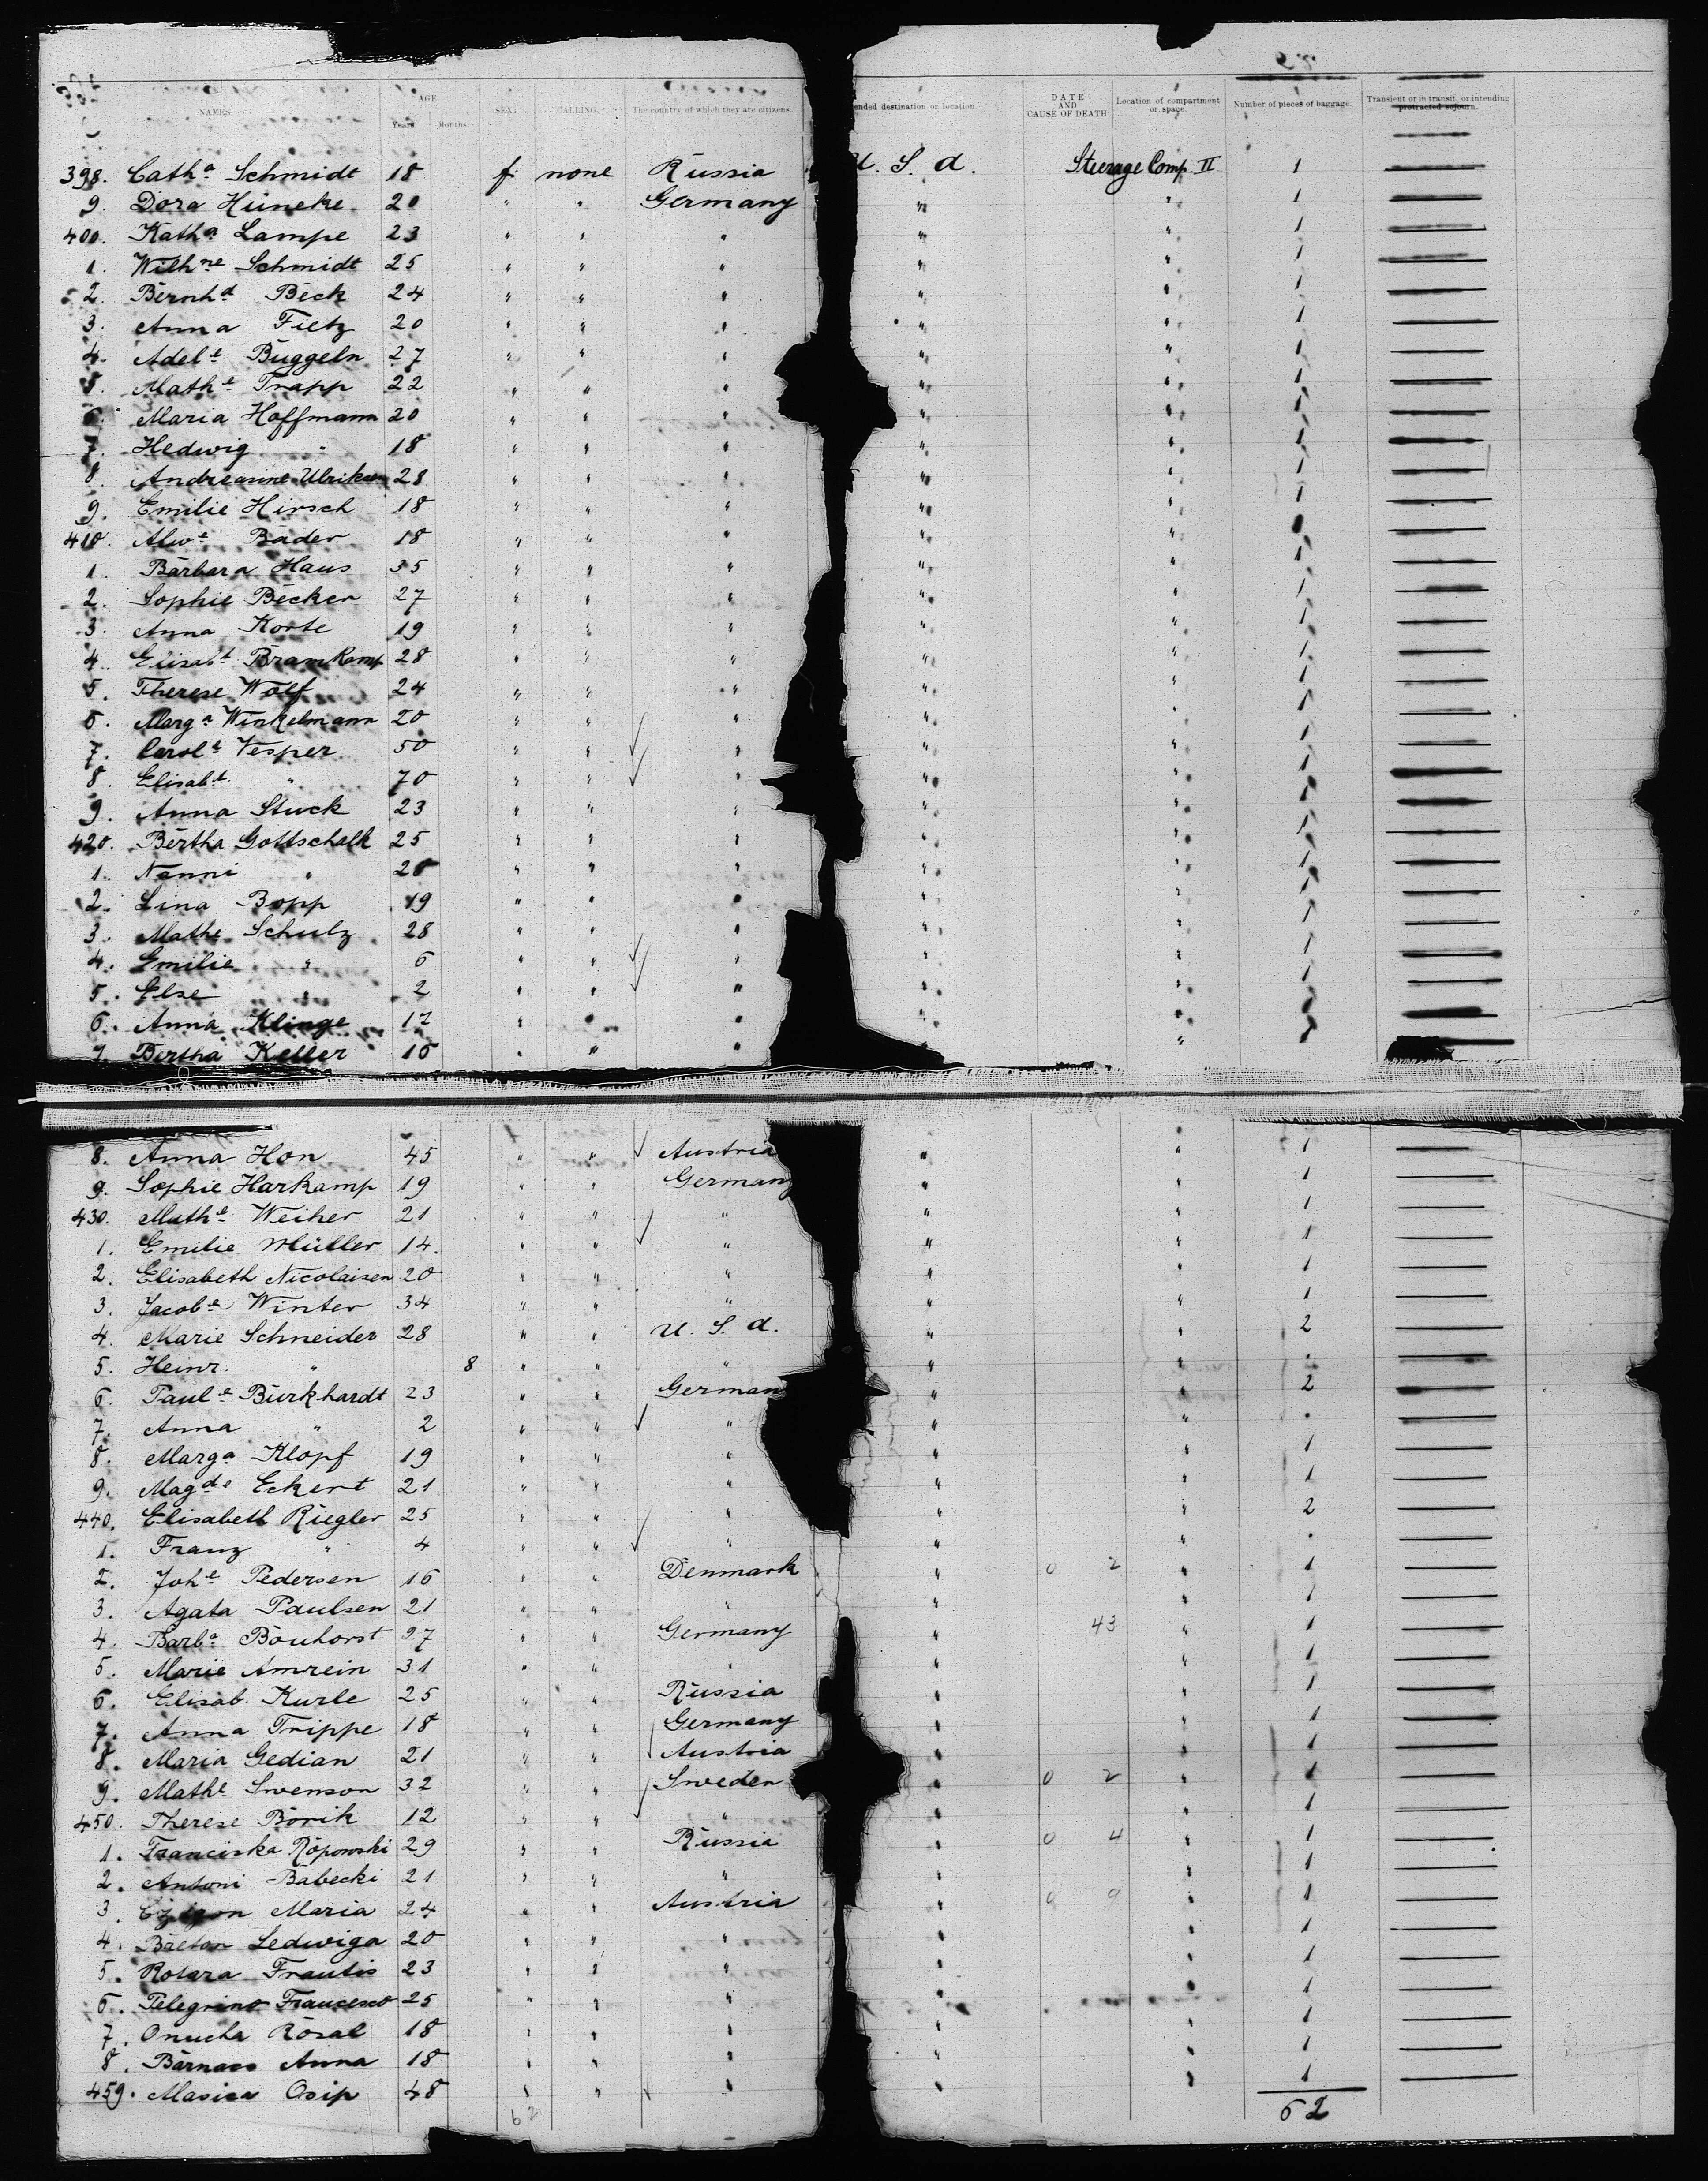 NAMES. AGE. Years. Months. SEX. CALLING. The country of which they are citizens. ended destination or location. DATE AND CAUSE OF DEATH Location of compartment or space. Number of pieces of baggage. Transient or in transit, or intending protracted sojourn.
398. Cath.a Schmidt 18 f none Russia U. S. A. Steerage Comp. II 1
9. Dora Heineke 20 " " Germany " " 1
400. Kath.a Lampe 23 " " " " " 1
1. Wilh.ne Schmidt 25 " " " " " 1
2. Bernh.d Beck 24 " " " " " 1
3. Anna Fietz 20 " " " " " 1
4. Adel.e Buggeln 27 " " " " " 1
5. Math.e Trapp 22 " " " " " 1
6. Maria Hoffmann 20 " " " " " 1
7. Hedwig " 18 " " " " " 1
8. Andreasine Ulriksen 28 " " " " " 1
9. Emilie Hirsch 18 " " " " " 1
410. Alw.e Bader 18 " " " " "
1. Barbara Haus 35 " " " " " 1
2. Sophie Becker 27 " " " " " 1
3. Anna Korte 19 " " " " " 1
4. Elisab.t Bramkamp 28 " " " " " 1
5. Therese Wolf 24 " " " " " 1
6. Marg.a Winkelmann 20 " " " " " 1
7. Carol.e Vesper 50 " " " " " 1
8. Elisab.t " 70 " " " " " 1
9. Anna Stuck 23 " " " " " 1
420. Bertha Gottschalk 25 " " " " " 1
1. Nanni " 28 " " " " " 1
2. Lina Bopp 19 " " " " " 1
3. Mathe Schulz 28 " " " " " 1
4. Emilie " 6 " " " " " 1
5. Else " 2 " " " " " 1
6. Anna Klinge 17 " " " " "
7. Bertha Keller 16 " " " "
8. Anna Hon 45 " " Austria " " 1
9. Sophie Harkamp 19 " " Germany " " 1
430. Math.e Weiher 21 " " " " " 1
1. Emilie Müller 14. " " " " " 1
2. Elisabeth Nicolaisen 20 " " " " " 1
3. Jacob.e Winter 34 " " " " " 1
4. Marie Schneider 28 " " U. S. A. " " 2
5. Heinr. " 8 " " " " " "
6. Paul.e Burkhardt 23 " " German " " 2
7. Anna " 2 " " " " " "
8. Marg.a Klopf 19 " " " " " 1
9. Magd.e Eckert 21 " " " " " 1
440. Elisabeth Riegler 25 " " " " " 2
1. Franz " 4 " " " " " "
2. Joh.e Pedersen 16 " " Denmark " 0 2 " 1
3. Agata Paulsen 21 " " " " " 1
4. Barb.a Bouhorst 27 " " Germany " 43 " 1
5. Marie Amrein 31 " " " " " 1
6. Elisab. Kurle 25 " " Russia " " 1
7. Anna Trippe 18 " " Germany " " 1
8. Maria Gedian 21 " " Austria " " 1
9. Math.e Swenson 32 " " Sweden " 0 2 " 1
450. Therese Borik 12 " " " " " 1
1. Franciska Ropowski 29 " " Russia " 0 4 " 1
2. Antoni Babecki 21 " " " " " 1
3. Maria 24 " " Austria " 0 9 " 1
4. Baetan Ledwiga 20 " " " " " 1
5. Rotara Frautis 23 " " " " " 1
6. Pelegrino Francesco 25 " " " " " 1
7. Onucha Rosal 18 " " " " " 1
8. Barnaco Anna 18 " " " " " 1
459. Masica Osip 48 " " " " " 1
62 62